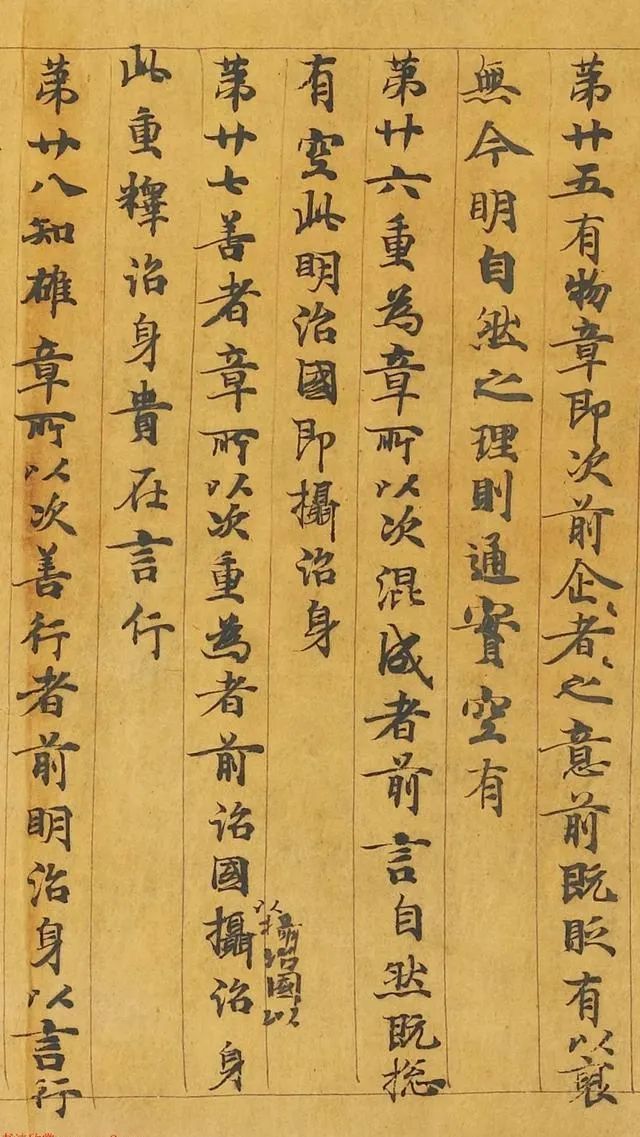 第廿五有物章即次前企〻者〻之意前既貶有以襃
無今明自然之理則通實空有
第廿六重為章所以次混成者前言自然既捴
有空此明治國即攝治身
第廿七善者章所以次重為者前治國攝治身
此重釋治身貴在言行
第廿八知雄章所以次善行者前明治身以言行